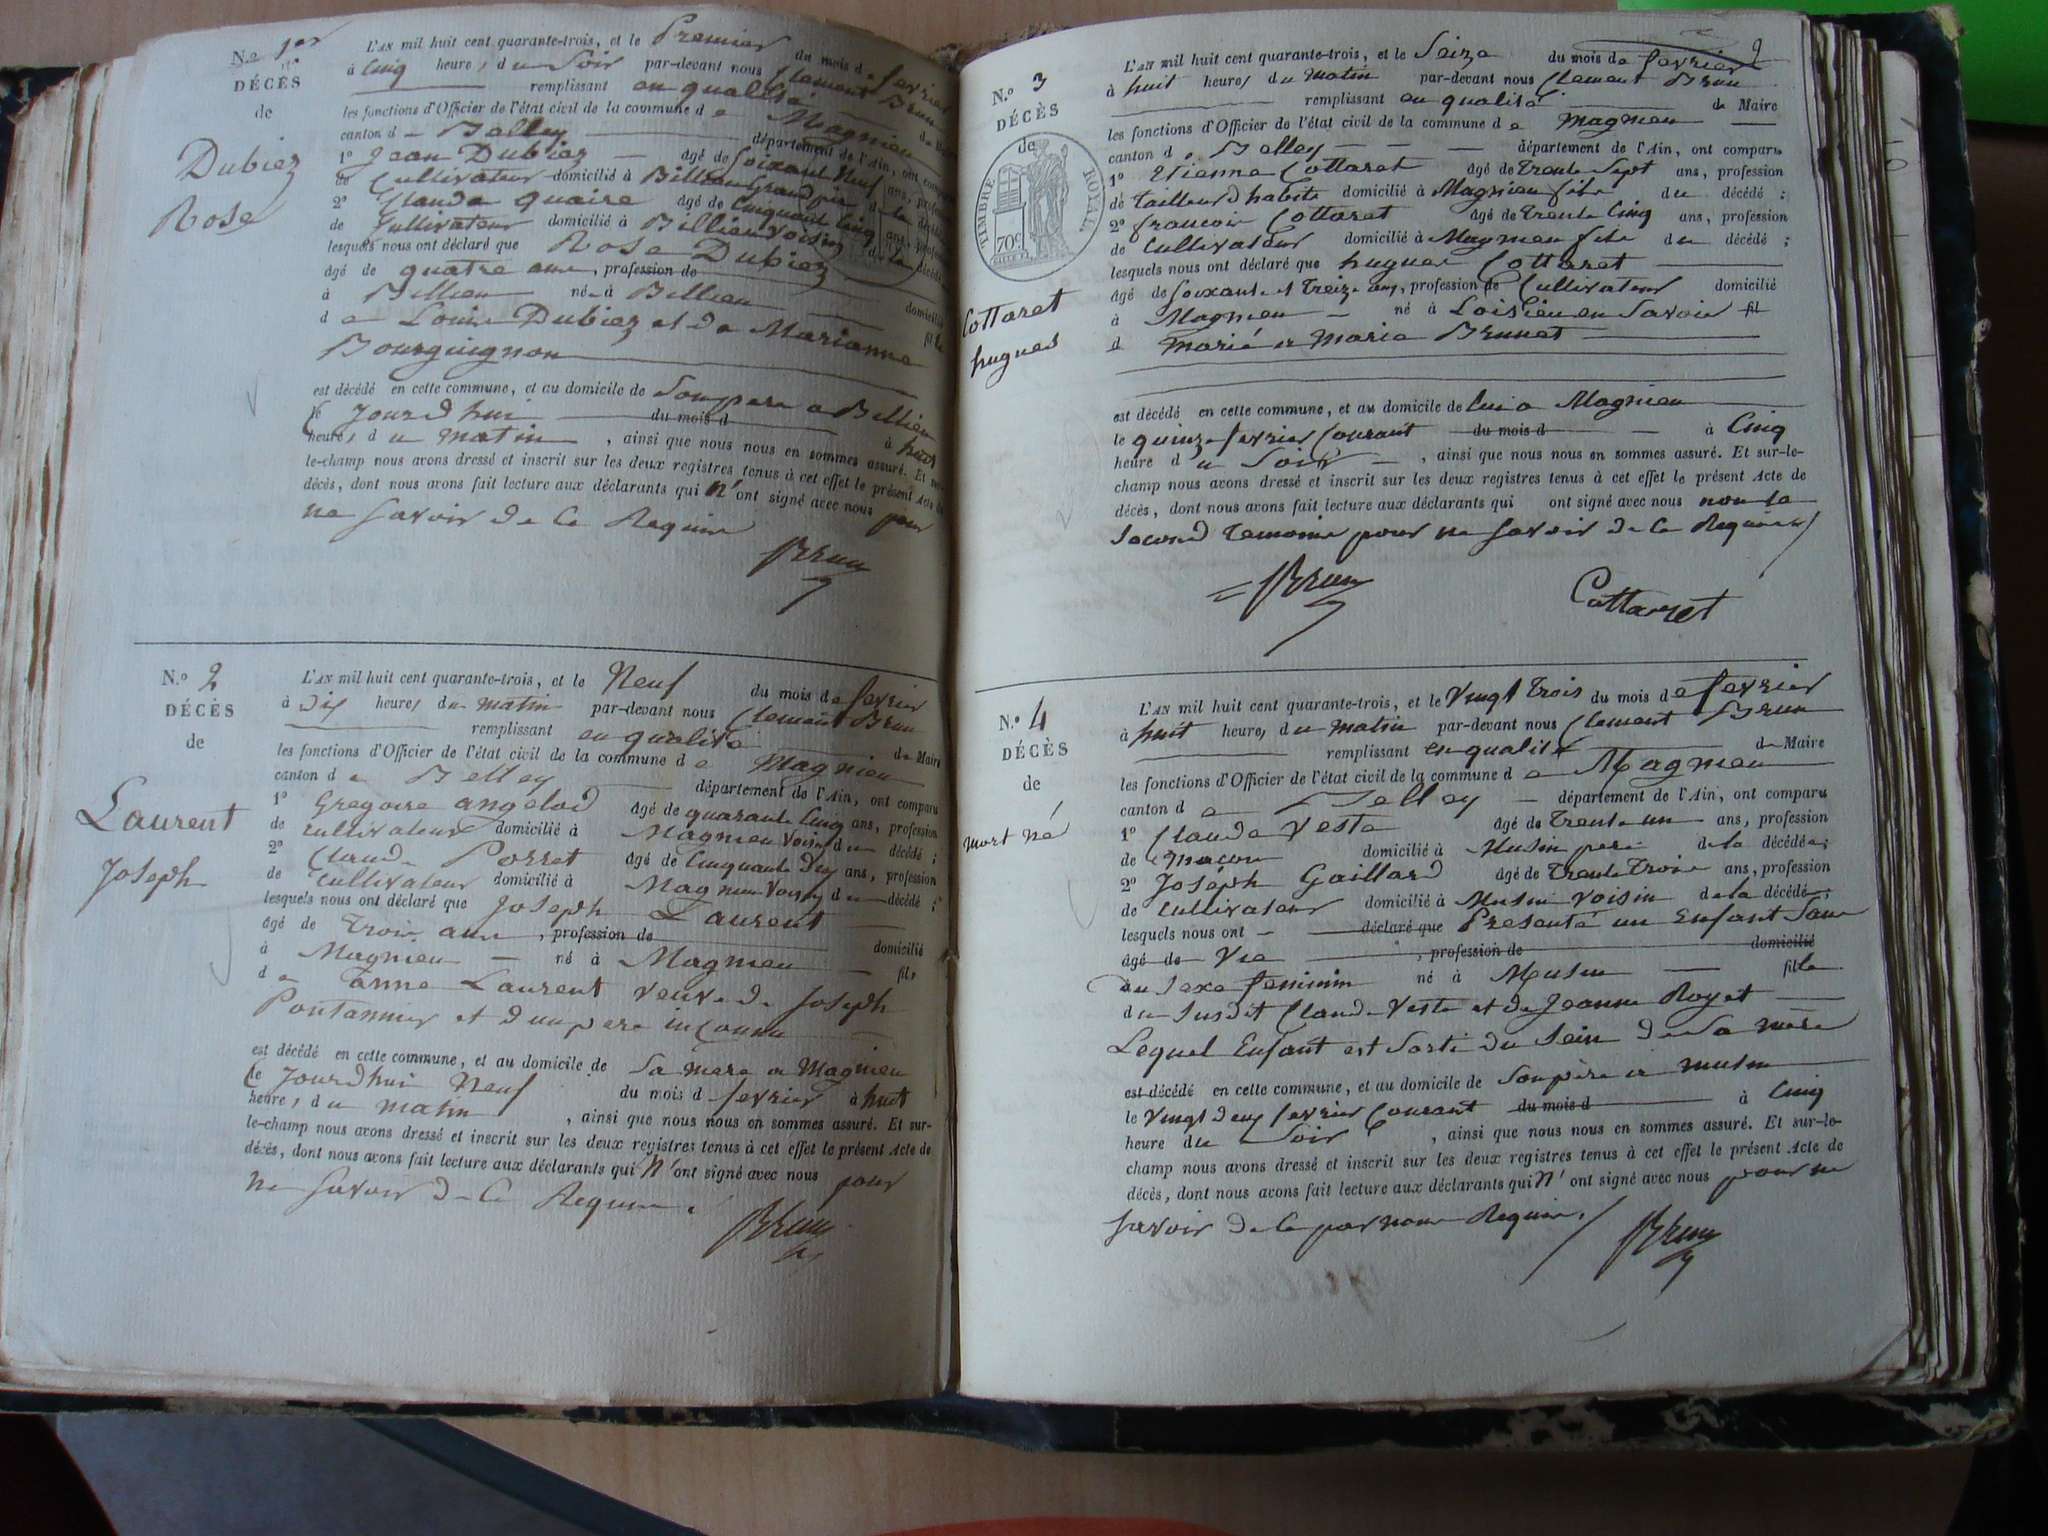 N.o 1er
DÉCÈS
de
Dubiez
Rose
L'AN mil huit cent quarante-trois, et le Premier du mois de fevrier
à Cinq heures, du Soir par-devant nous Clement Brun
remplissant en qualité de Maire
les fonctions d'Officier de l'état civil de la commune de Magnieu
canton de Belley département de l'Ain, ont comparu
1º Jean Dubiez âgé de Soixant Neuf ans, profession
de Cultivateur domicilié à Billieu Grand père de la décédée
2º Claude quaire âgé de Cinquant Cinq ans, profession
de Cultivateur domicilié à Billieu voisin de la décédée
lesquels nous ont déclaré que Rose Dubiez
âgé de quatre ans, profession de domicilié
à Billieu née à Billieu fille
de Louis Dubiez et de Marianne
Bourguignon
est décédé en cette commune, et au domicile de Son pere a Billieu
le Jourdhui du mois d à huit
heures, du matin, ainsi que nous nous en sommes assuré. Et sur-
le-champ nous avons dressé et inscrit sur les deux registres tenus à cet effet le présent Acte de
décès, dont nous avons fait lecture aux déclarants qui n'ont signé avec nous pour
ne Savoir de Ce Requis
Brun
N.o 2
DÉCÈS
de
Laurent
Joseph
L'AN mil huit cent quarante-trois, et le Neuf du mois de fevrier
à Dix heures, du matin par-devant nous Clement Brun
remplissant en qualité de Maire
les fonctions d'Officier de l'état civil de la commune de Magnieu
canton de Belley département de l'Ain, ont comparu
1º Gregoire angelod âgé de quarante Cinq ans, profession
de Cultivateur domicilié à Magnieu Voisin du décédé ;
2º Claude Porret âgé de Cinquante Deux ans, profession
de Cultivateur domicilié à Magnieu Voisin du décédé ;
lesquels nous ont déclaré que Joseph Laurent
âgé de Trois ans, profession de domicilié
à Magnieu né à Magnieu fils
de anne Laurent veuve de Joseph
Pontannier et d'un pere inconnu
est décédé en cette commune, et au domicile de Sa mere a Magnieu
le Jourdhui Neuf du mois d fevrier à huit
heures, du matin, ainsi que nous nous en sommes assuré. Et sur-
le-champ nous avons dressé et inscrit sur les deux registres tenus à cet effet le présent Acte de
décès, dont nous avons fait lecture aux déclarants qui N'ont signé avec nous pour
ne Savoir de Ce Requis.
Brun
2
N.o 3
DÉCÈS
de
TIMBRE ROYAL
70c
Cottaret
hugues
L'AN mil huit cent quarante-trois, et le Seize du mois de fevrier
à huit heures, du matin par-devant nous Clement Brun
remplissant en qualité de Maire
les fonctions d'Officier de l'état civil de la commune de Magnieu
canton de Belley département de l'Ain, ont comparu
1º Etienne Cottaret âgé de Trente Sept ans, profession
de Tailleur d habits domicilié à Magnieu fils du décédé ;
2º francois Cottaret âgé de Trente Cinq ans, profession
de Cultivateur domicilié à Magnieu fils du décédé ;
lesquels nous ont déclaré que hugues Cottaret
âgé de Soixante et Treize ans, profession de Cultivateur domicilié
à Magnieu né à Loisieu en Savoie fil
d Marié a Marie Brunet
est décédé en cette commune, et au domicile de lui a Magnieu
le quinze fevrier Courant du mois d à Cinq
heure du Soir, ainsi que nous nous en sommes assuré. Et sur-le-
champ nous avons dressé et inscrit sur les deux registres tenus à cet effet le présent Acte de
décès, dont nous avons fait lecture aux déclarants qui ont signé avec nous non le
Second Temoins pour ne Savoir de Ce Requis
Brun Cottaret
N.o 4
DÉCÈS
de
mort né
L'AN mil huit cent quarante-trois, et le Vingt Trois du mois de fevrier
à huit heures, du matin par-devant nous Clement Brun
remplissant en qualité de Maire
les fonctions d'Officier de l'état civil de la commune de Magnieu
canton de Belley département de l'Ain, ont comparu
1º Claude Veste âgé de Trente un ans, profession
de Macon domicilié à Musin pere de la décédée ;
2º Joséph Gaillard âgé de Trente Trois ans, profession
de Cultivateur domicilié à Musin Voisin de la décédé ;
lesquels nous ont déclaré que Presenté un Enfant Sans
âgé de Vie, profession de domicilié
du Sexe feminin né à Musin fille
du Susdit Claude Veste et de Jeanne Royet
Lequel Enfant est Sorti du Sein de Sa mère
est décédé en cette commune, et au domicile de Son père a musin
le Vingt deux fevrier Courant du mois d à Cinq
heure du Soir, ainsi que nous nous en sommes assuré. Et sur-le-
champ nous avons dressé et inscrit sur les deux registres tenus à cet effet le présent Acte de
décès, dont nous avons fait lecture aux déclarants qui N'ont signé avec nous pour ne
Savoir de Ce par nous Requis.
Brun